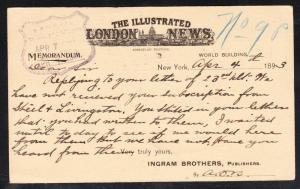 THE ILLUSTRATED
LONDON NEWS.
No 98
APR 7
MEMORANDUM.
WORLD BUILDING,
New York, Apr 4th 1893
Replying to your letter of 23rd Ult. We
have not received your subscription from
Stiel & Livingston. You stated in your letters
that you had written to them, I waited
until to day to see if we would hear
from them but we have not. Have you
heard from them
Very truly yours,
INGRAM BROTHERS, PUBLISHERS.